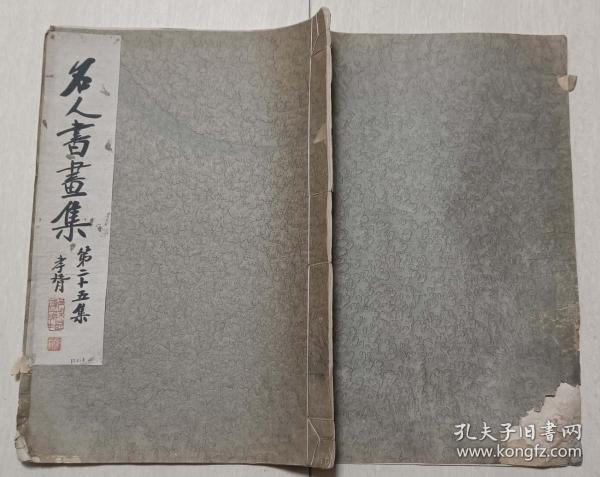 名人書畫集
第二十五集
孝胥
孔夫子旧書网
www.kongfz.com